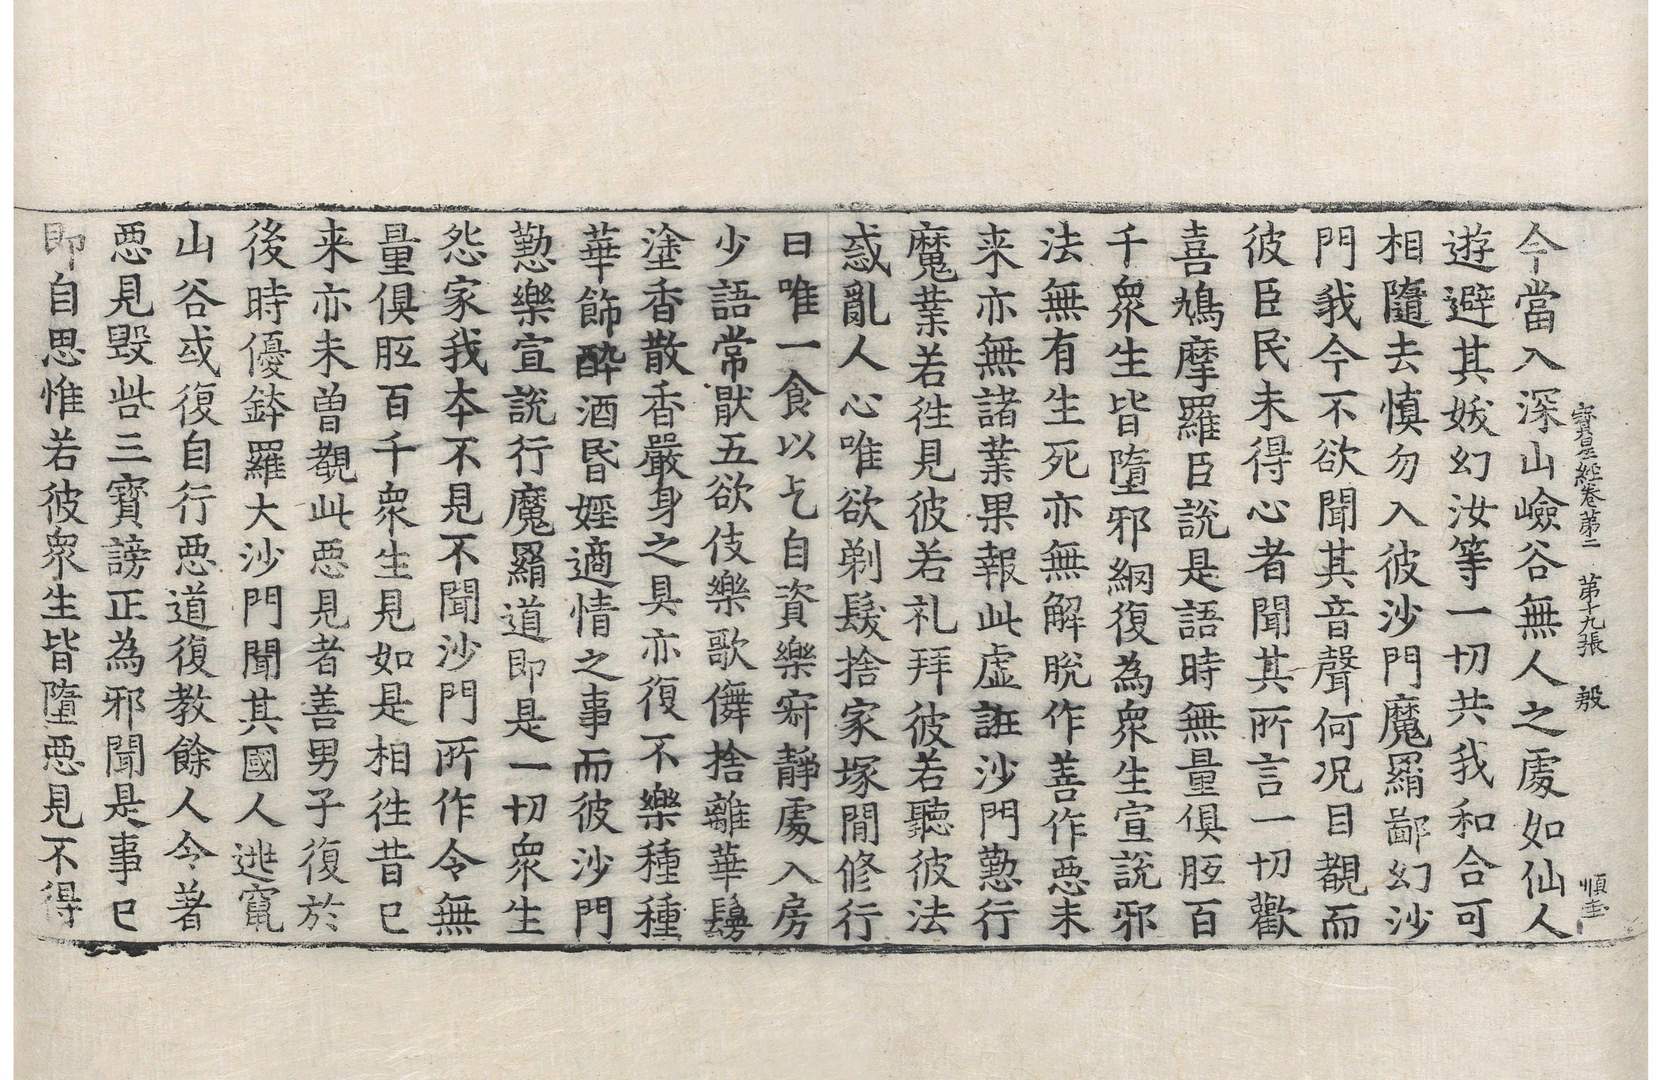 寳星經卷第二 第十九張 殷 順圭
今當入深山嶮谷無人之處如仙人
遊避其妭幻汝等一切共我和合可
相隨去慎勿入彼沙門魔羂鄙幻沙
門我今不欲聞其音聲何況目覩而
彼臣民未得心者聞其所言一切歡
喜鳩摩羅臣説是語時無量俱胝百
千衆生皆墮邪網復為衆生宣説邪
法無有生死亦無解脫作善作惡未
来亦無諸業果報此虚誑沙門懃行
魔業若徃見彼若礼拜彼若聽彼法
惑亂人心唯欲剃髮捨家塚間修行
日唯一食以乞自資樂寂靜處入房
少語常猒五欲伎樂歌儛捨離華鬘
塗香散香嚴身之具亦復不樂種種
華飾酔酒昬婬適情之事而彼沙門
懃樂宣説行魔羂道即是一切衆生
怨家我夲不見不聞沙門所作令無
量俱胝百千衆生見如是相徃昔已
来亦未曽覩此惡見者善男子復於
後時優鉢羅大沙門聞其國人逃竄
山谷或復自行惡道復教餘人令著
惡見毀呰三寳謗正為邪聞是事已
即自思惟若彼衆生皆墮惡見不得